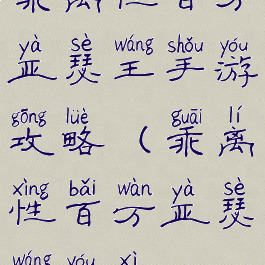 yà sè wáng shǒu yóu
亚瑟王手游
gōng lüè guāi lí
攻略（乖离
xìng bǎi wàn yà sè
性百万亚瑟
wáng yóu xì